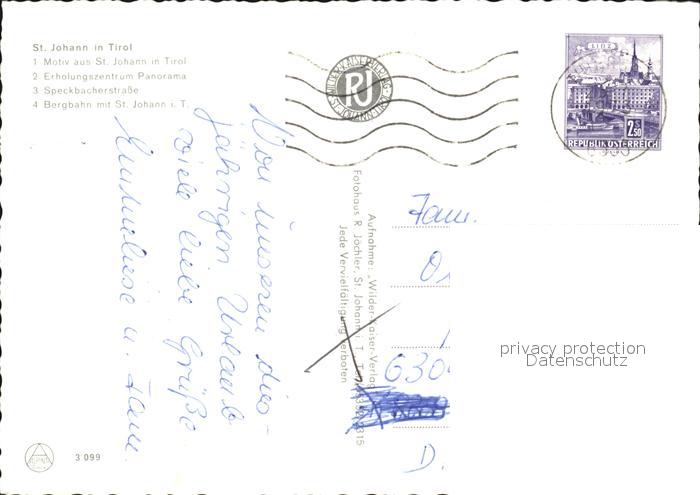 St. Johann in Tirol
1 Motiv aus St. Johann in Tirol
2 Erholungszentrum Panorama
3 Speckbacherstraße
4 Bergbahn mit St. Johann i. T.
LINZ
2.50
S
REPUBLIK ÖSTERREICH
Von unseren dies-
jährigen Urlaub
viele liebe Grüße
u. Fam.
Aufnahme: „Wilder-Kaiser-Verlag
Fotohaus R. Jöchler, St. Johann i. T.
Jede Vervielfältigung verboten
Fam.
630
D.
privacy protection
Datenschutz
3 099